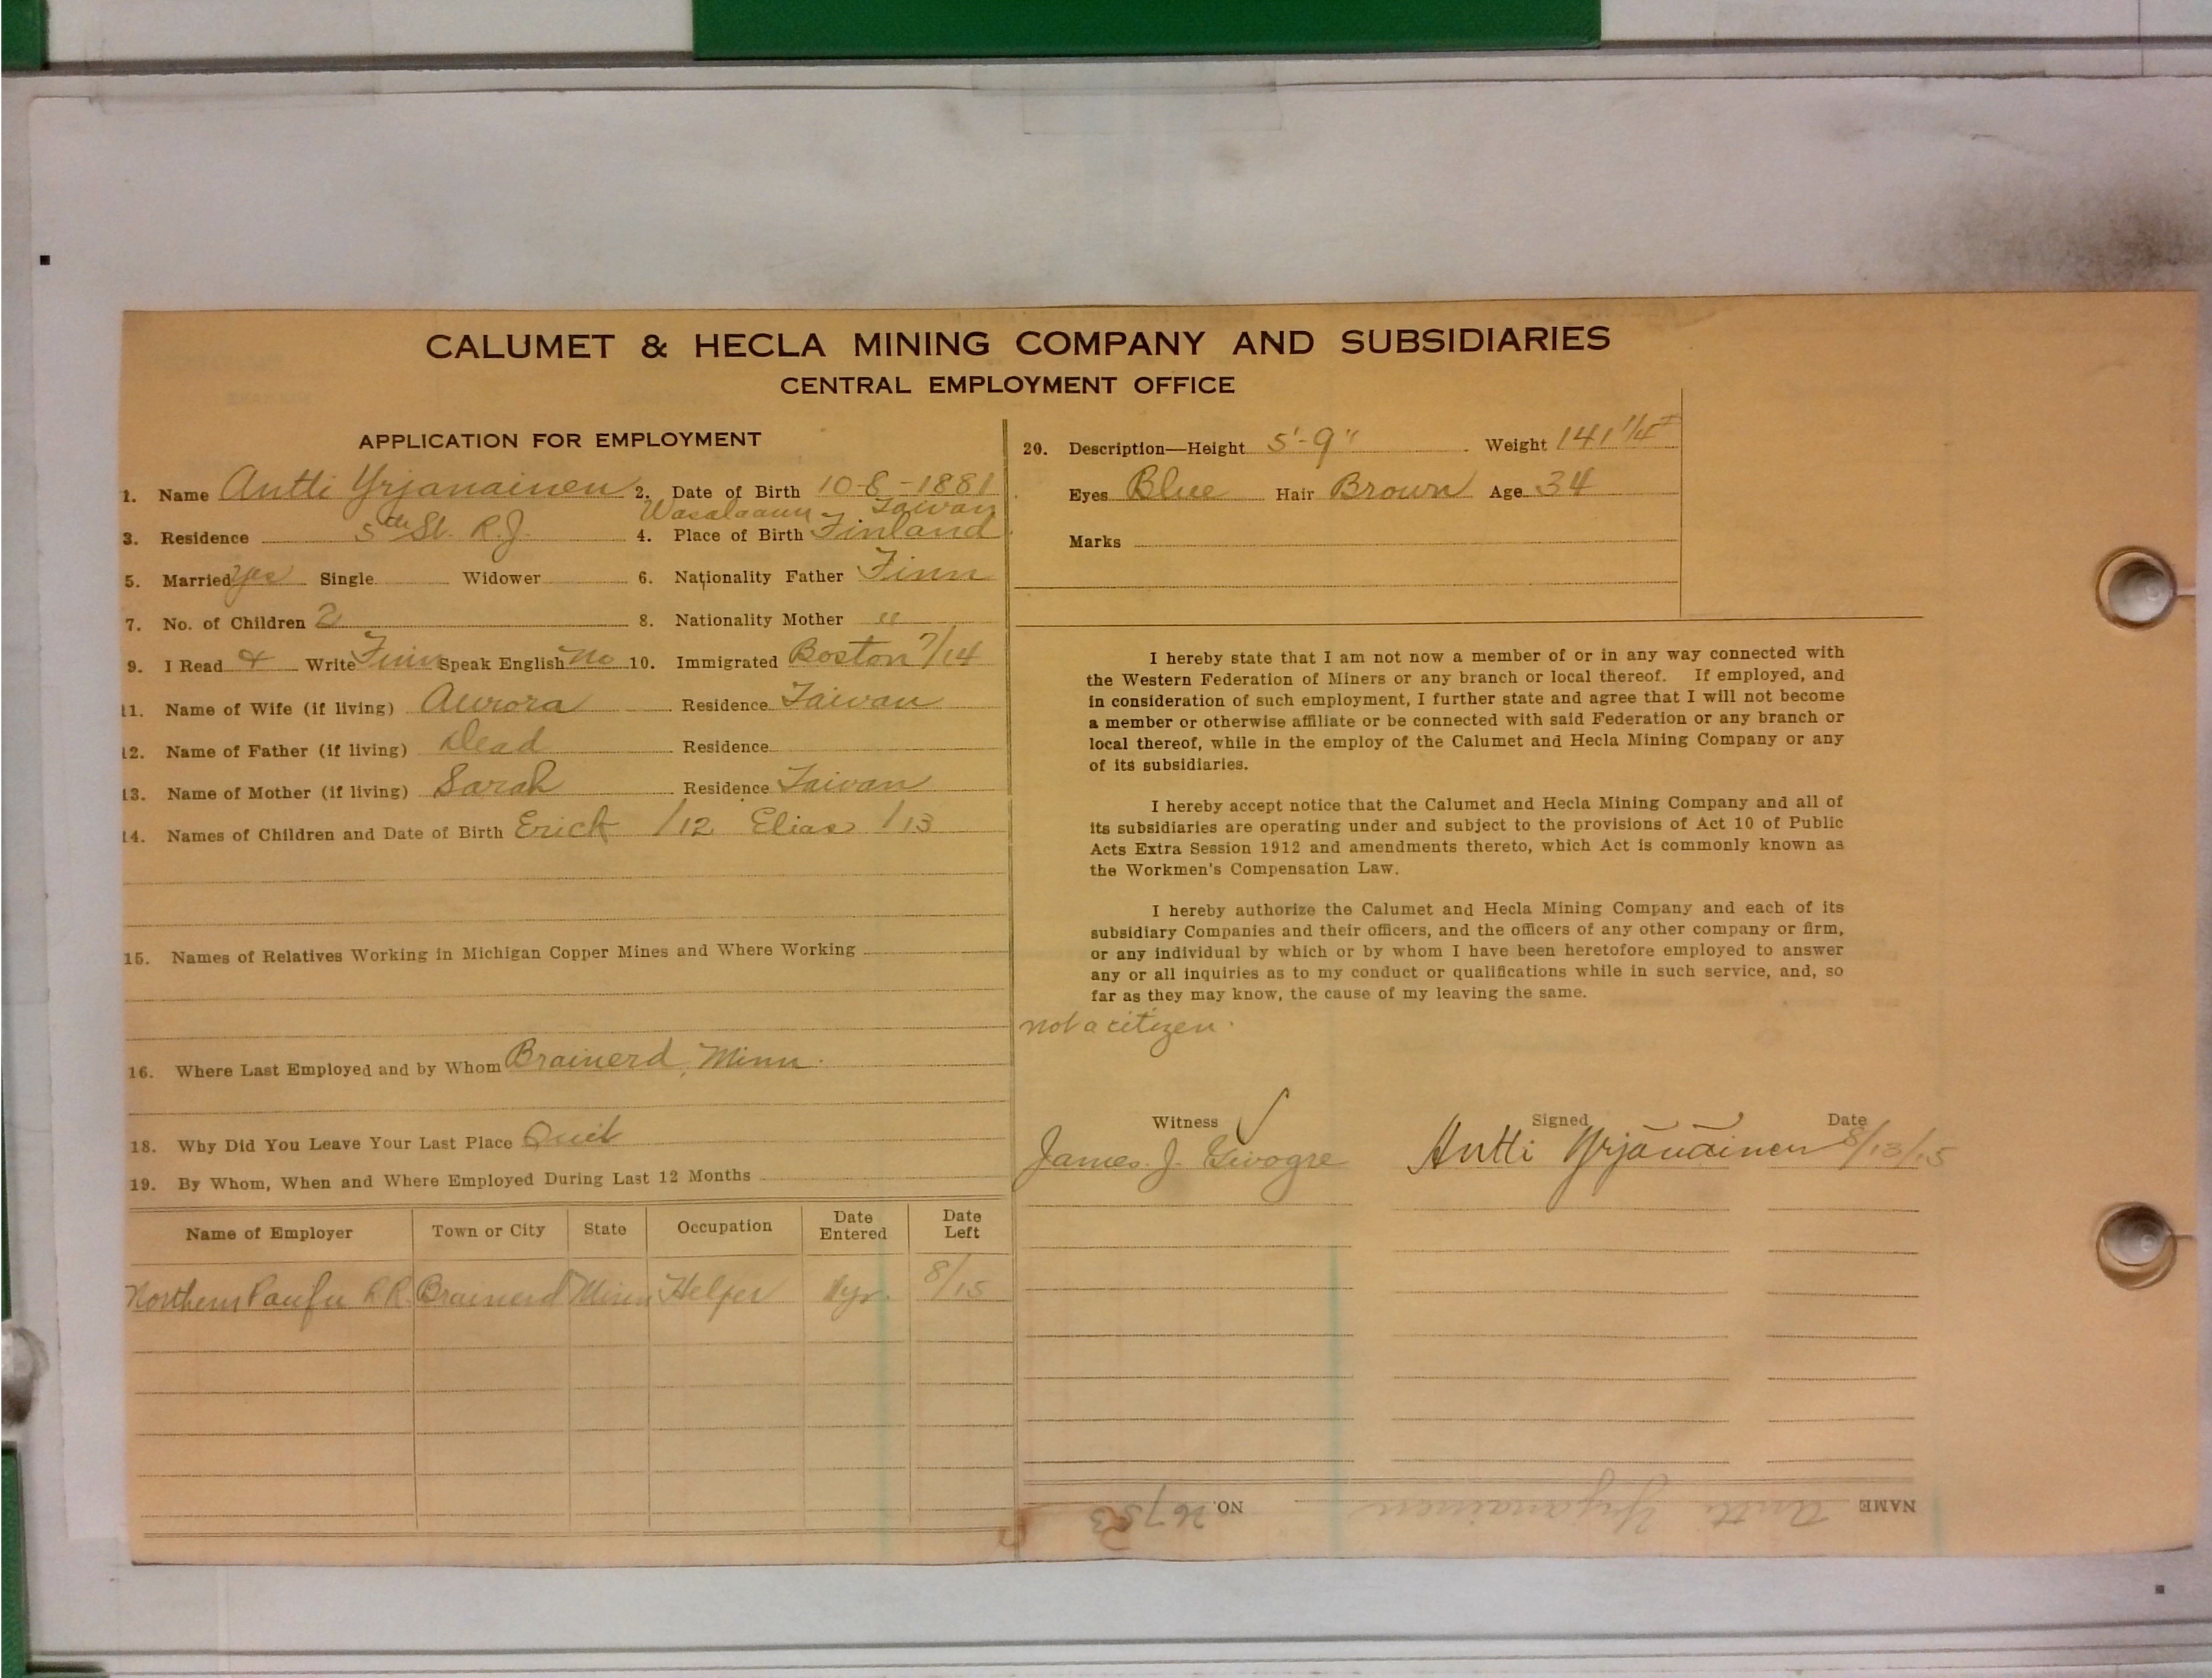 CALUMET & HECLA MINING COMPANY AND SUBSIDIARIES
CENTRAL EMPLOYMENT OFFICE
APPLICATION FOR EMPLOYMENT
1. Name Antti Yrjanainen 2. Date of Birth 10-8-1881
Taivan
3. Residence 5th St. R.J. 4. Place of Birth Finland
5. Married Yes Single Widower 6. Nationality Father Finn
7. No. of Children 2 8. Nationality Mother "
9. I Read & Write Finn Speak English No 10. Immigrated Boston 7/14
11. Name of Wife (if living) Aurora Residence Taivan
12. Name of Father (if living) Dead Residence
13. Name of Mother (if living) Sarah Residence Taivan
14. Names of Children and Date of Birth Erick /12 Elias /13
15. Names of Relatives Working in Michigan Copper Mines and Where Working
16. Where Last Employed and by Whom Brainerd, Minn.
18. Why Did You Leave Your Last Place Quit
19. By Whom, When and Where Employed During Last 12 Months
Name of Employer Town or City State Occupation Date Entered Date Left
Northern Pacific R.R. Brainerd Minn Helper 1yr. 8/15
20. Description—Height 5'-9" Weight 141 1/4#
Eyes Blue Hair Brown Age 34
Marks
I hereby state that I am not now a member of or in any way connected with
the Western Federation of Miners or any branch or local thereof. If employed, and
in consideration of such employment, I further state and agree that I will not become
a member or otherwise affiliate or be connected with said Federation or any branch or
local thereof, while in the employ of the Calumet and Hecla Mining Company or any
of its subsidiaries.
I hereby accept notice that the Calumet and Hecla Mining Company and all of
its subsidiaries are operating under and subject to the provisions of Act 10 of Public
Acts Extra Session 1912 and amendments thereto, which Act is commonly known as
the Workmen's Compensation Law.
I hereby authorize the Calumet and Hecla Mining Company and each of its
subsidiary Companies and their officers, and the officers of any other company or firm,
or any individual by which or by whom I have been heretofore employed to answer
any or all inquiries as to my conduct or qualifications while in such service, and, so
far as they may know, the cause of my leaving the same.
not a citizen.
Witness Signed Date
James J. Antti Yrjänäinen 8/13/15
NAME Antti Yrjanainen NO. 26753